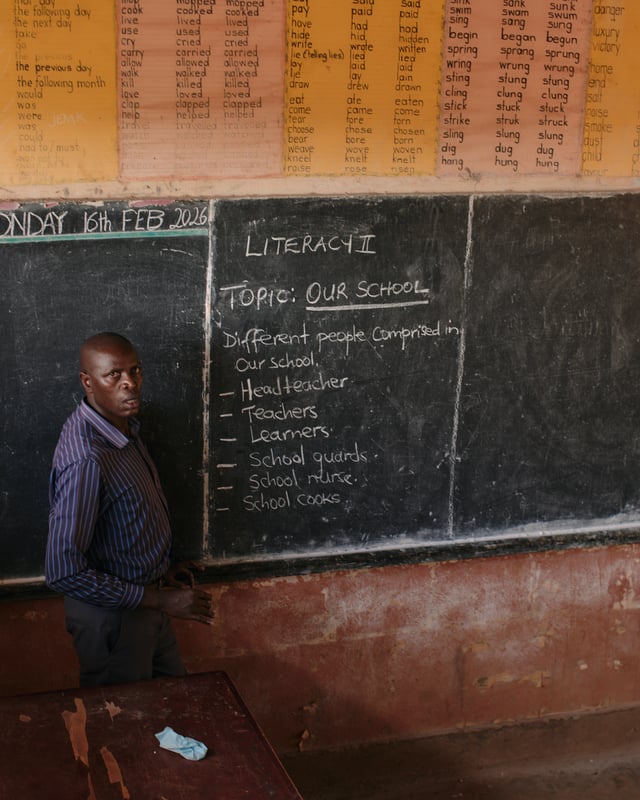 the following day
the next day
take
go
the previous day
the following month
would
was
were
was
could
had to/must
mopped mopped
cook cooked cooked
live lived lived
use used used
cry cried cried
carry carried carried
allow allowed allowed
walk walked walked
kill killed killed
love loved loved
clap clapped clapped
help helped helped
travel travelled travelled
say said said
pay paid paid
have had had
hide hid hidden
write wrote written
lie (telling lies) lied lied
lay laid laid
lie lay lain
draw drew drawn
eat ate eaten
come came come
tear tore torn
choose chose chosen
bear bore born
weave wove woven
kneel knelt knelt
raise rose risen
sink sank sunk
swim swam swum
sing sang sung
begin began begun
spring sprang sprung
wring wrung wrung
sting stung stung
cling clung clung
stick stuck stuck
strike struck struck
sling slung slung
dig dug dug
hang hung hung
danger
luxury
victory
home
end
salt
raise
smoke
dust
child
ONDAY 16th FEB 2026
LITERACY II
TOPIC: OUR SCHOOL
Different people Comprised in
Our school.
– Headteacher
– Teachers
– Learners
– School guards.
– School nurse.
– School cooks